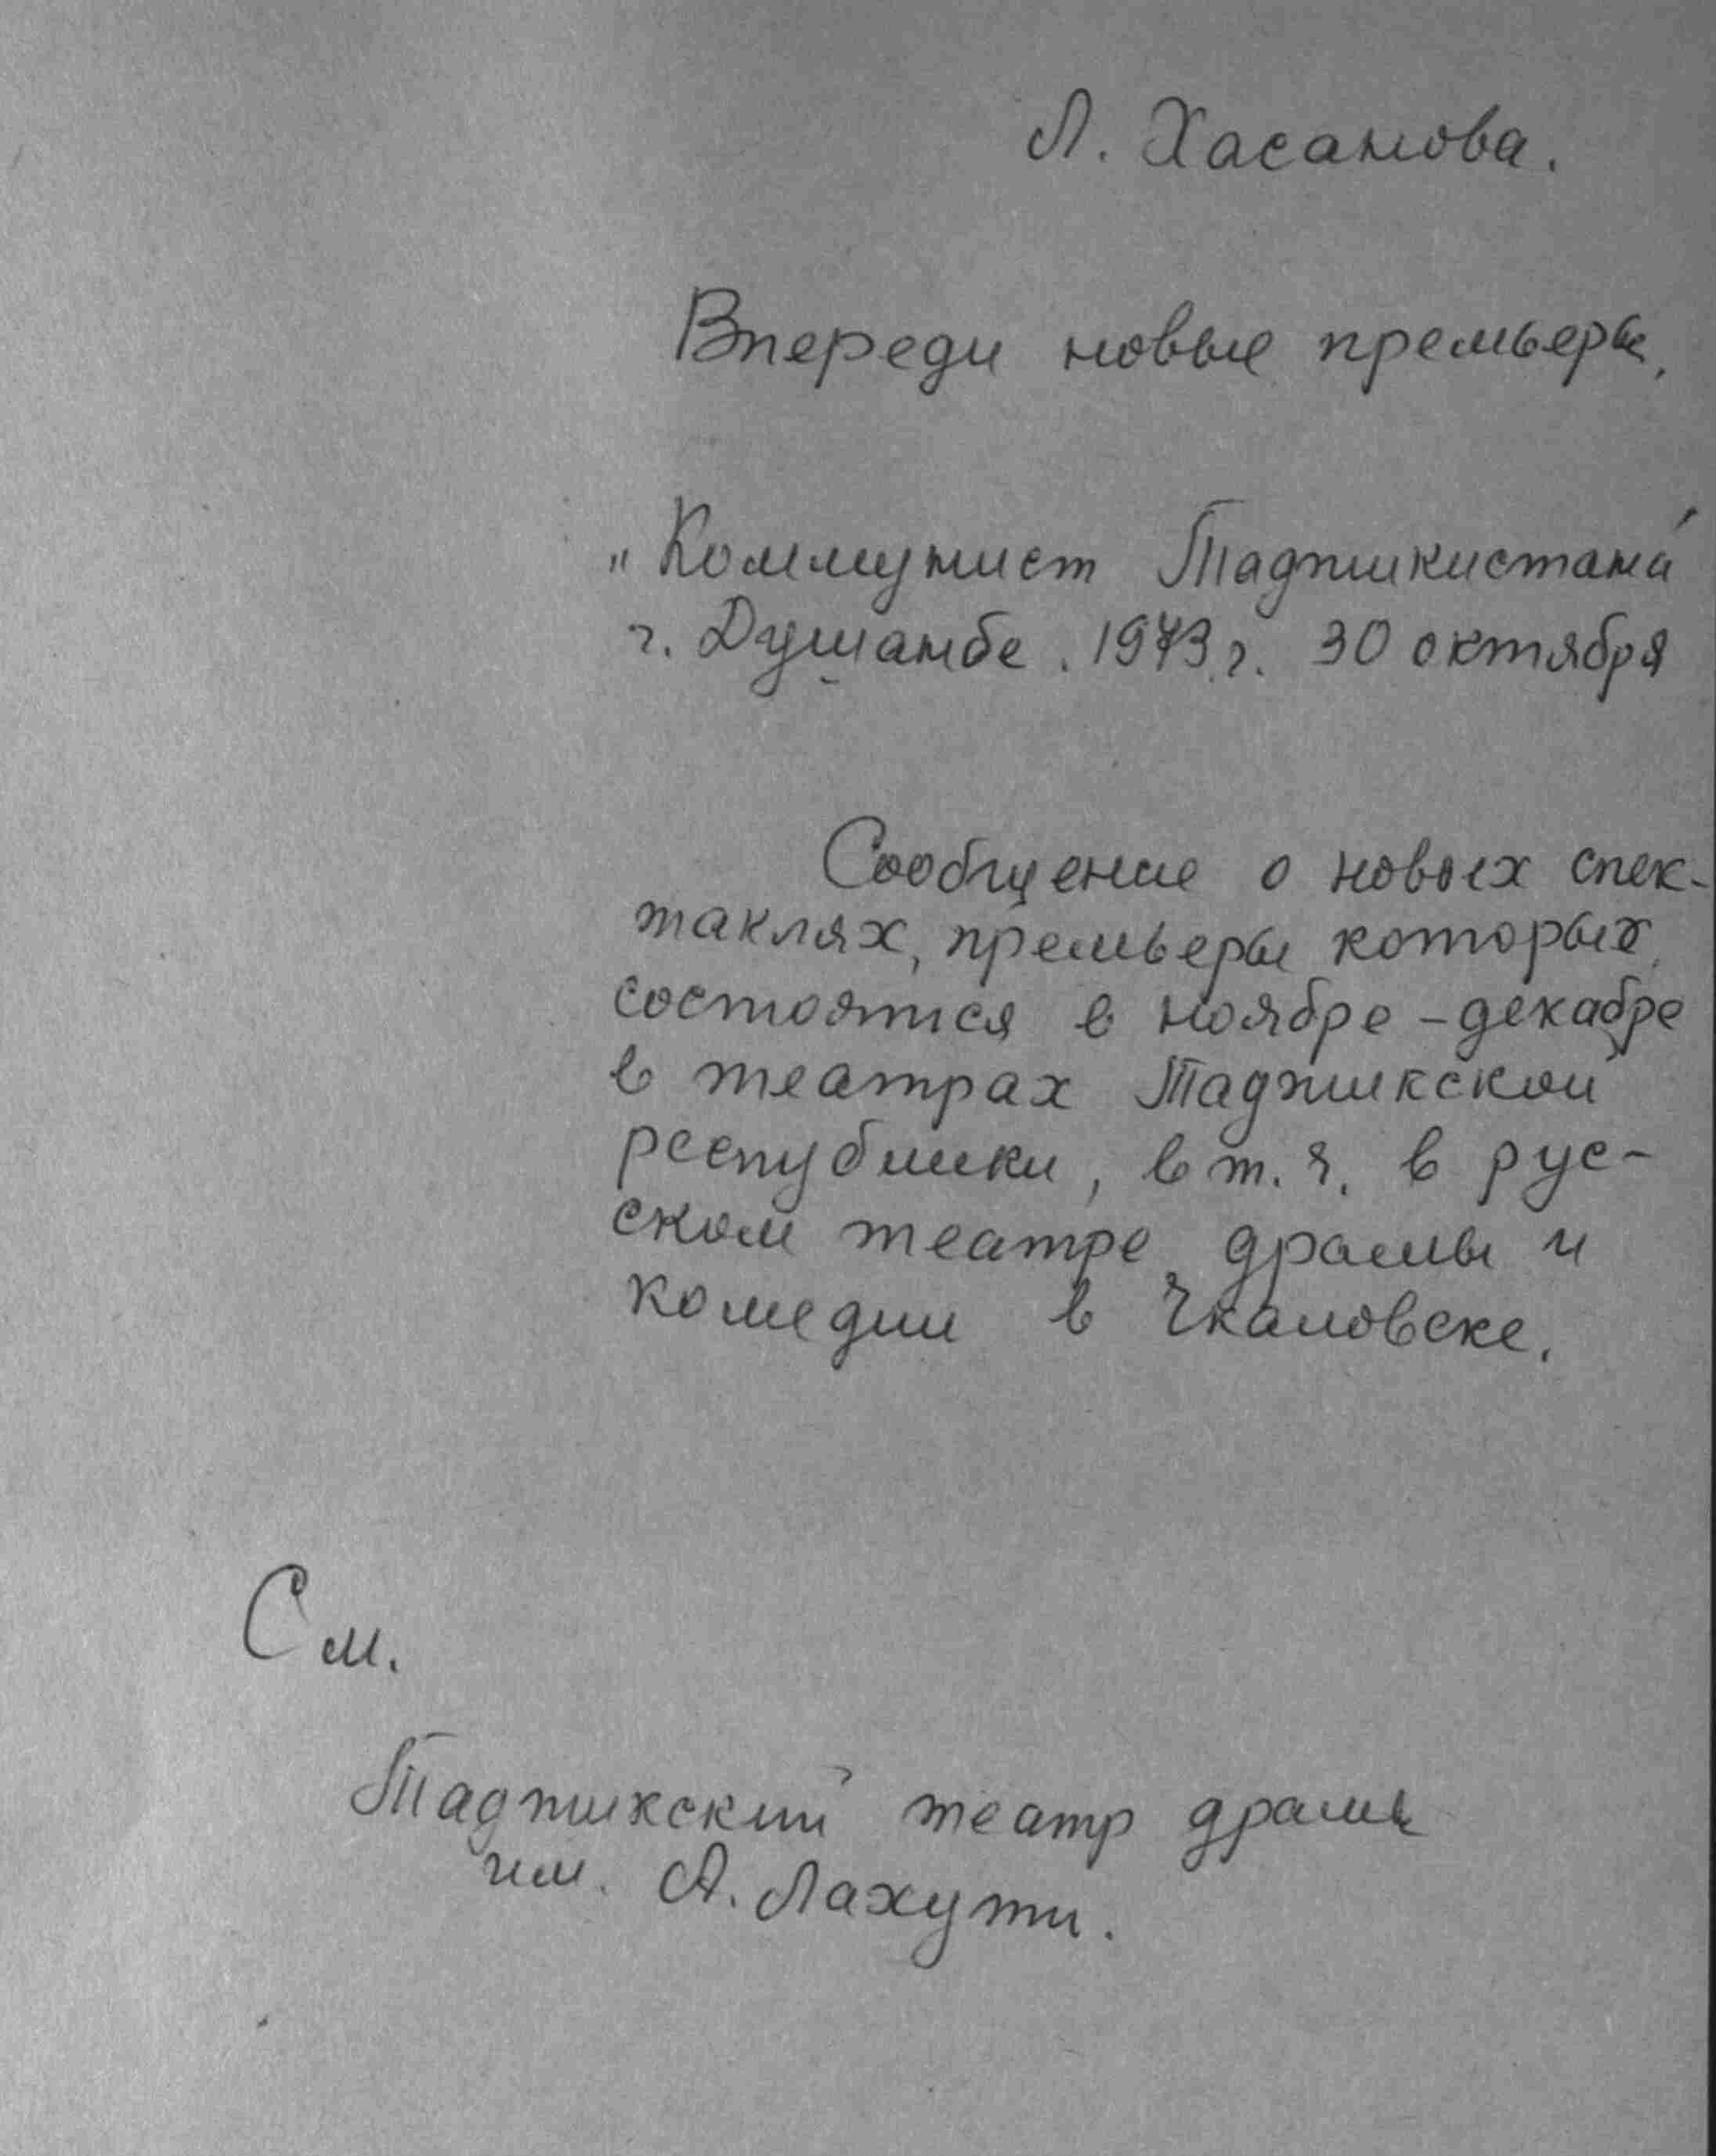 Л. Хасанова.
Впереди новые премьеры,
„Коммунист Таджикистана"
г. Душанбе. 1973 г. 30 октября
Сообщение о новых спек-
таклях, премьеры которых
состоятся в ноябре - декабре
в театрах Таджикской
республики, в т. ч. в рус-
ском театре драмы и
комедии в Чкаловске.
См.
Таджикский театр драмы
им. А. Лахути.